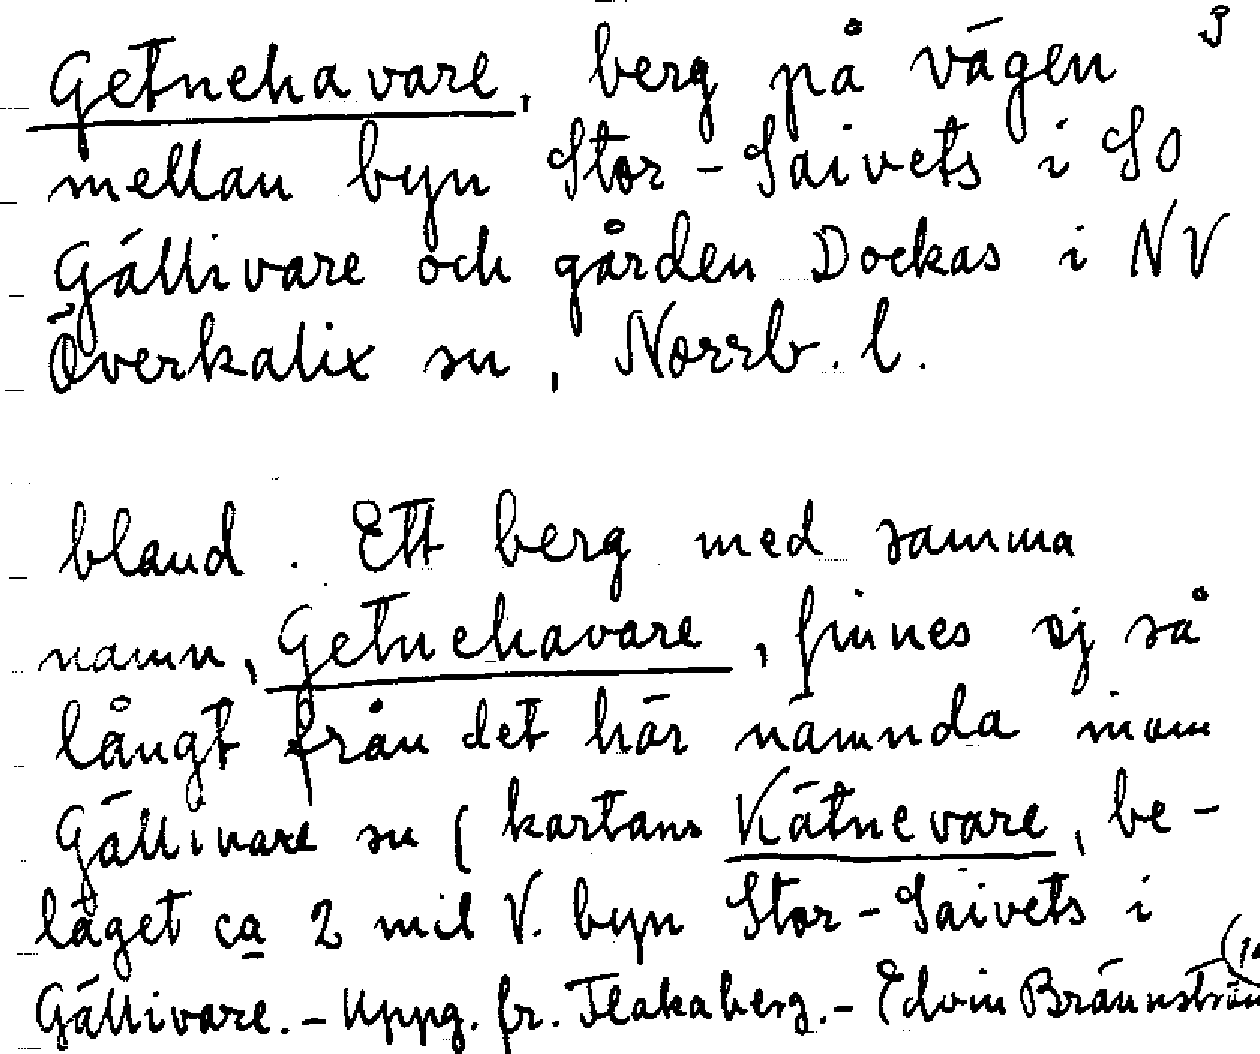 Getnehavare, berg på vägen
mellan byn Stor-Saivets i SO
Gällivare och gården Dockas i NV
Överkalix sn, Norrb. l.
bland. Ett berg med samma
namn, Getnehavare, finnes ej så
långt från det här nämnda inom
Gällivare sn (kartans Kätnevare, be-
läget ca 2 mil V. byn Stor-Saivets i
Gällivare. - Uppg. fr. Flakaberg. - Edvin Brännström